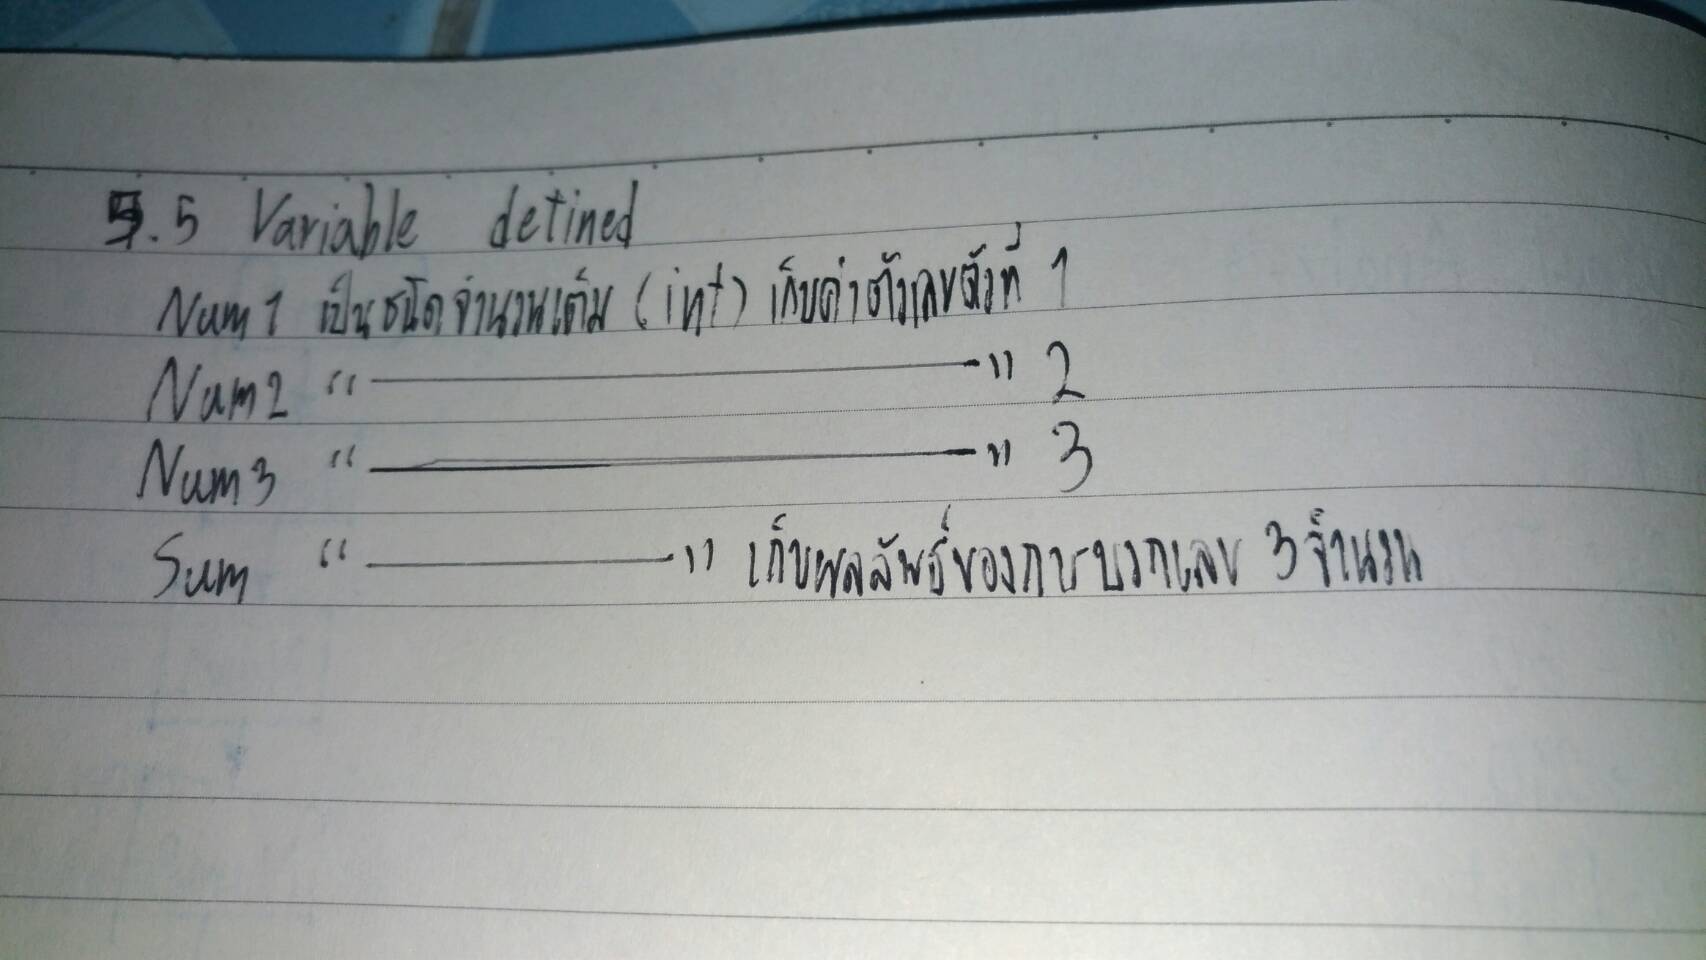 5.5 Variable defined
Num1 เป็นชนิดจำนวนเต็ม (int) เก็บค่าตัวเลขตัวที่ 1
Num2 “ ———— ” 2
Num3 “ ———— ” 3
Sum “ ———— ” เก็บผลลัพธ์ของการบวกเลข 3 จำนวน